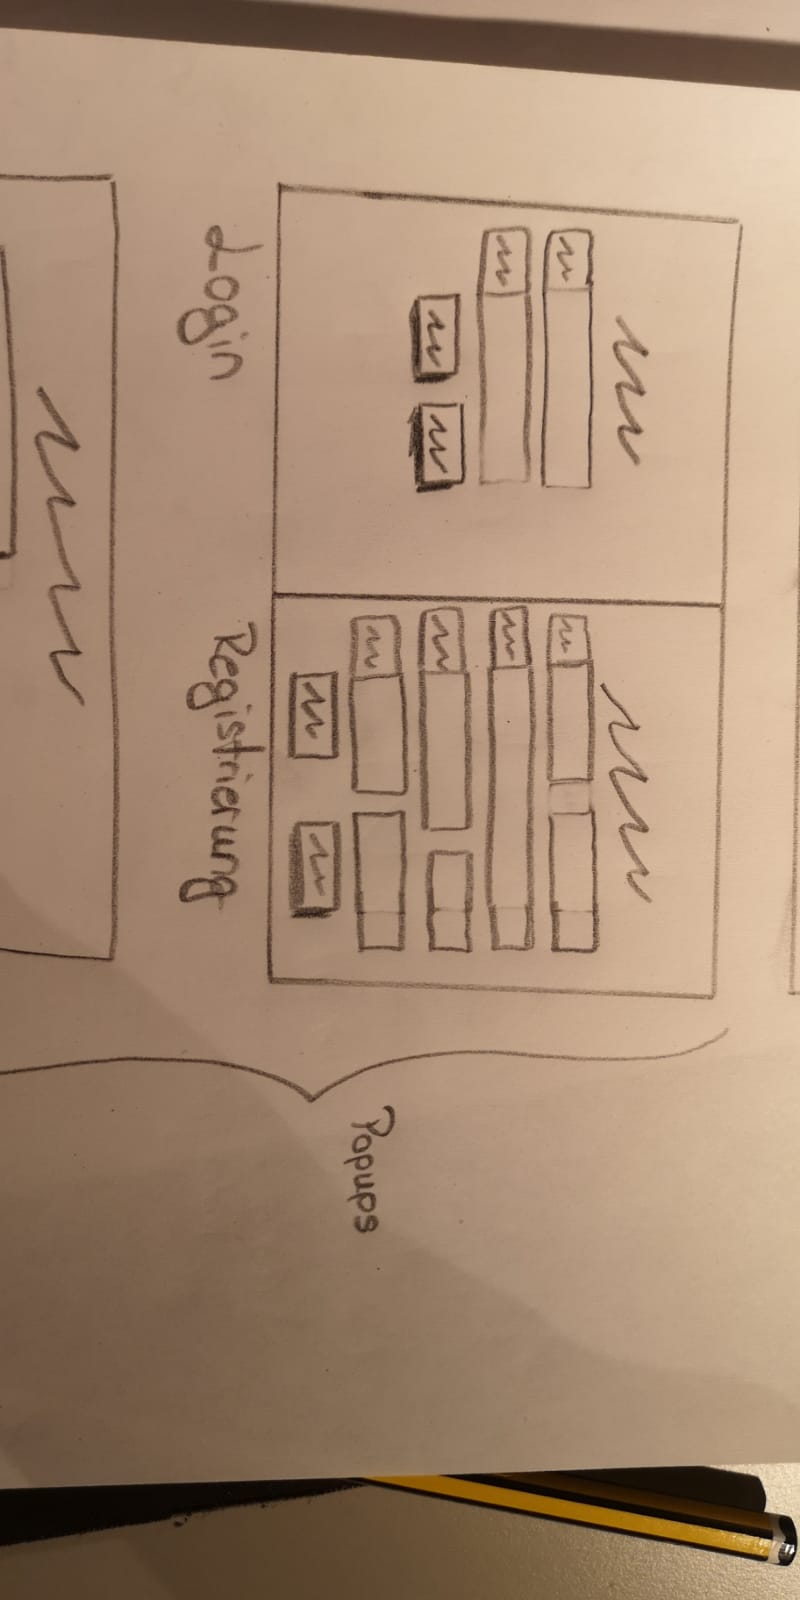 Login
Registrierung
Popups